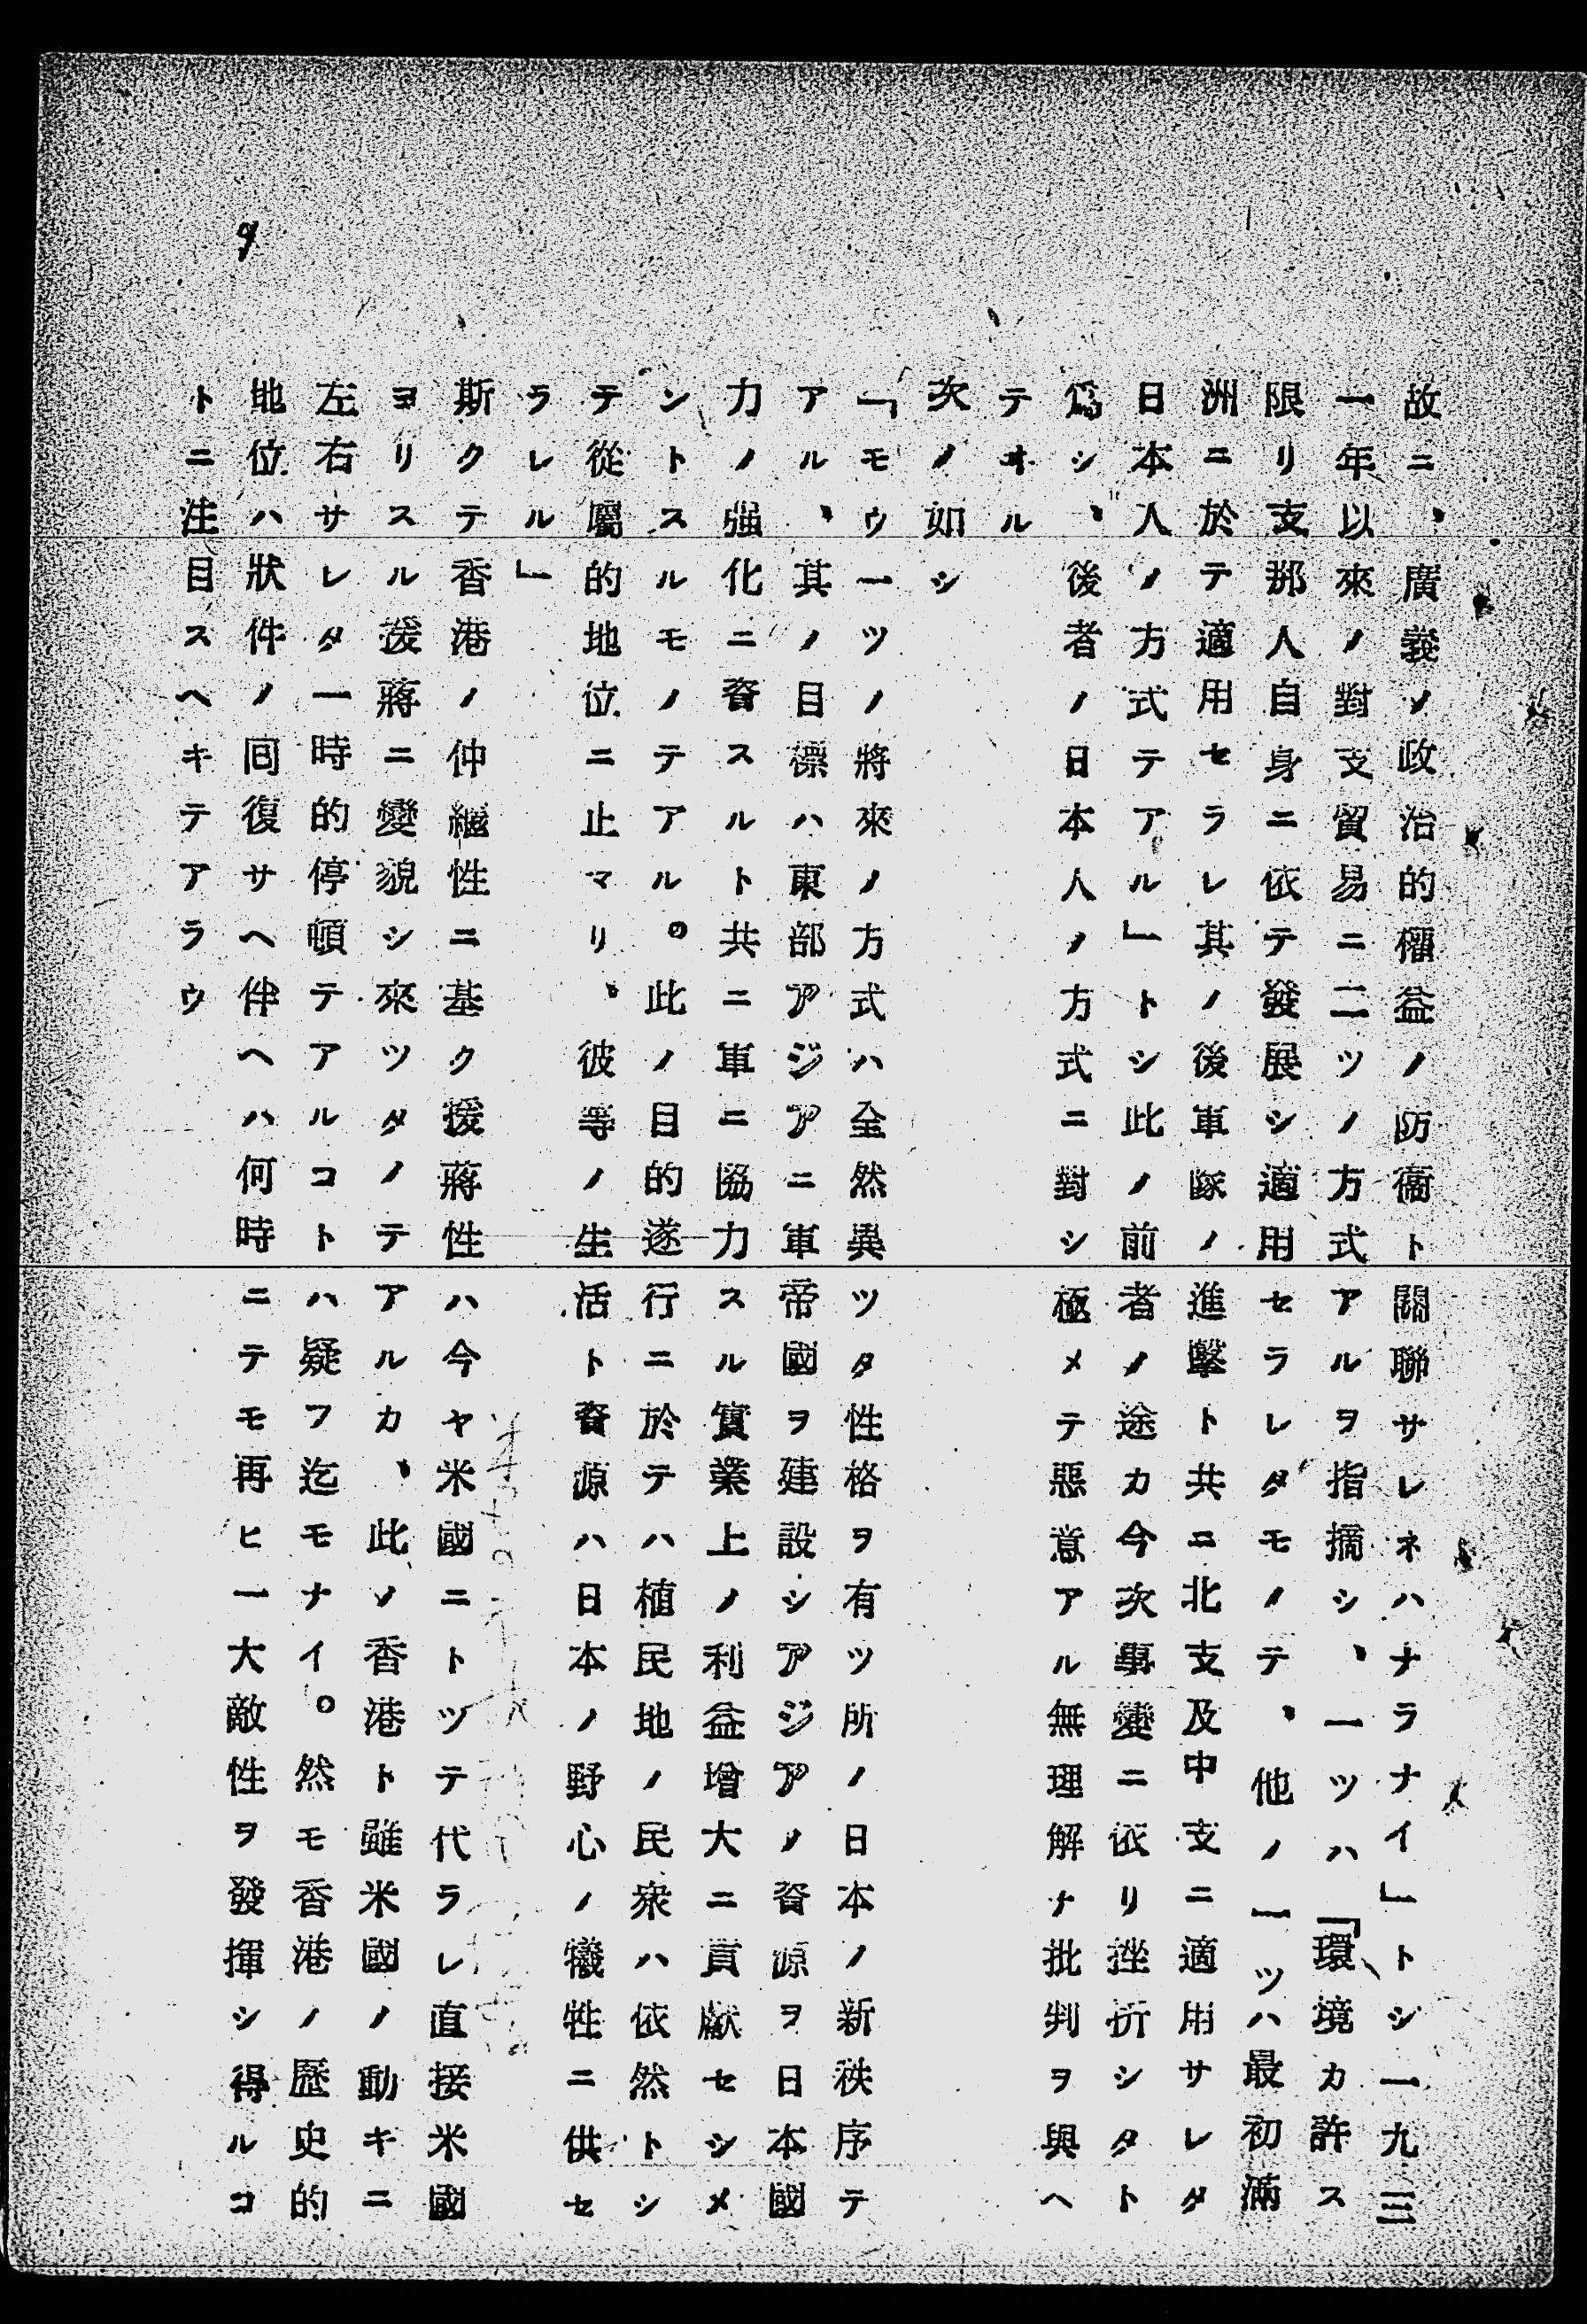 故ニ、廣義ノ政治的權益ノ防衞ト關聯サレネハナラナイ」トシ一九三
一年以來ノ對支貿易ニ二ツノ方式アルヲ指摘シ、一ツハ「環境カ許ス
限リ支那人自身ニ依テ發展シ適用セラレタモノテ、他ノ一ツハ最初滿
洲ニ於テ適用セラレ其ノ後軍隊ノ進擊ト共ニ北支及中支ニ適用サレタ
日本人ノ方式テアル」トシ此ノ前者ノ途カ今次事變ニ依リ挫折シタト
爲シ、後者ノ日本人ノ方式ニ對シ極メテ惡意アル無理解ナ批判ヲ與ヘ
テヰル
次ノ如シ
「モウ一ツノ將來ノ方式ハ全然異ツタ性格ヲ有ツ所ノ日本ノ新秩序テ
アル、其ノ目標ハ東部アジアニ軍帝國ヲ建設シアジアノ資源ヲ日本國
力ノ强化ニ資スルト共ニ軍ニ協力スル實業上ノ利益增大ニ貢獻セシメ
ントスルモノテアル。此ノ目的遂行ニ於テハ植民地ノ民衆ハ依然トシ
テ從屬的地位ニ止マリ、彼等ノ生活ト資源ハ日本ノ野心ノ犧牲ニ供セ
ラレル」
斯クテ香港ノ仲繼性ニ基ク援蔣性ハ今ヤ米國ニトツテ代ラレ直接米國
ヨリスル援蔣ニ變貌シ來ツタノテアルカ、此ノ香港ト雖米國ノ動キニ
左右サレタ一時的停頓テアルコトハ疑フ迄モナイ。然モ香港ノ歷史的
地位ハ狀件ノ囘復サヘ伴ヘハ何時ニテモ再ヒ一大敵性ヲ發揮シ得ルコ
トニ注目スヘキテアラウ
9